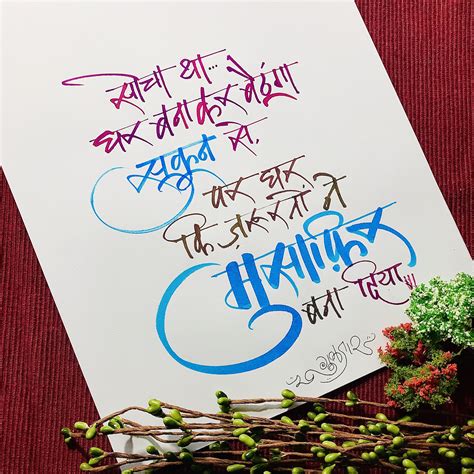 सोचा था...
घर बनाकर बैठूंगा
सुकून से,
पर घर
कि ज़रूरतों ने
मुसाफ़िर
बना दिया...